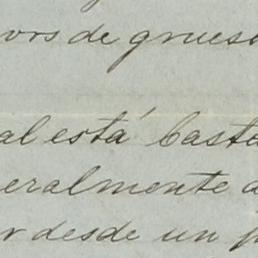 ors de grueso
al está basta
eralmente a
r desde un p